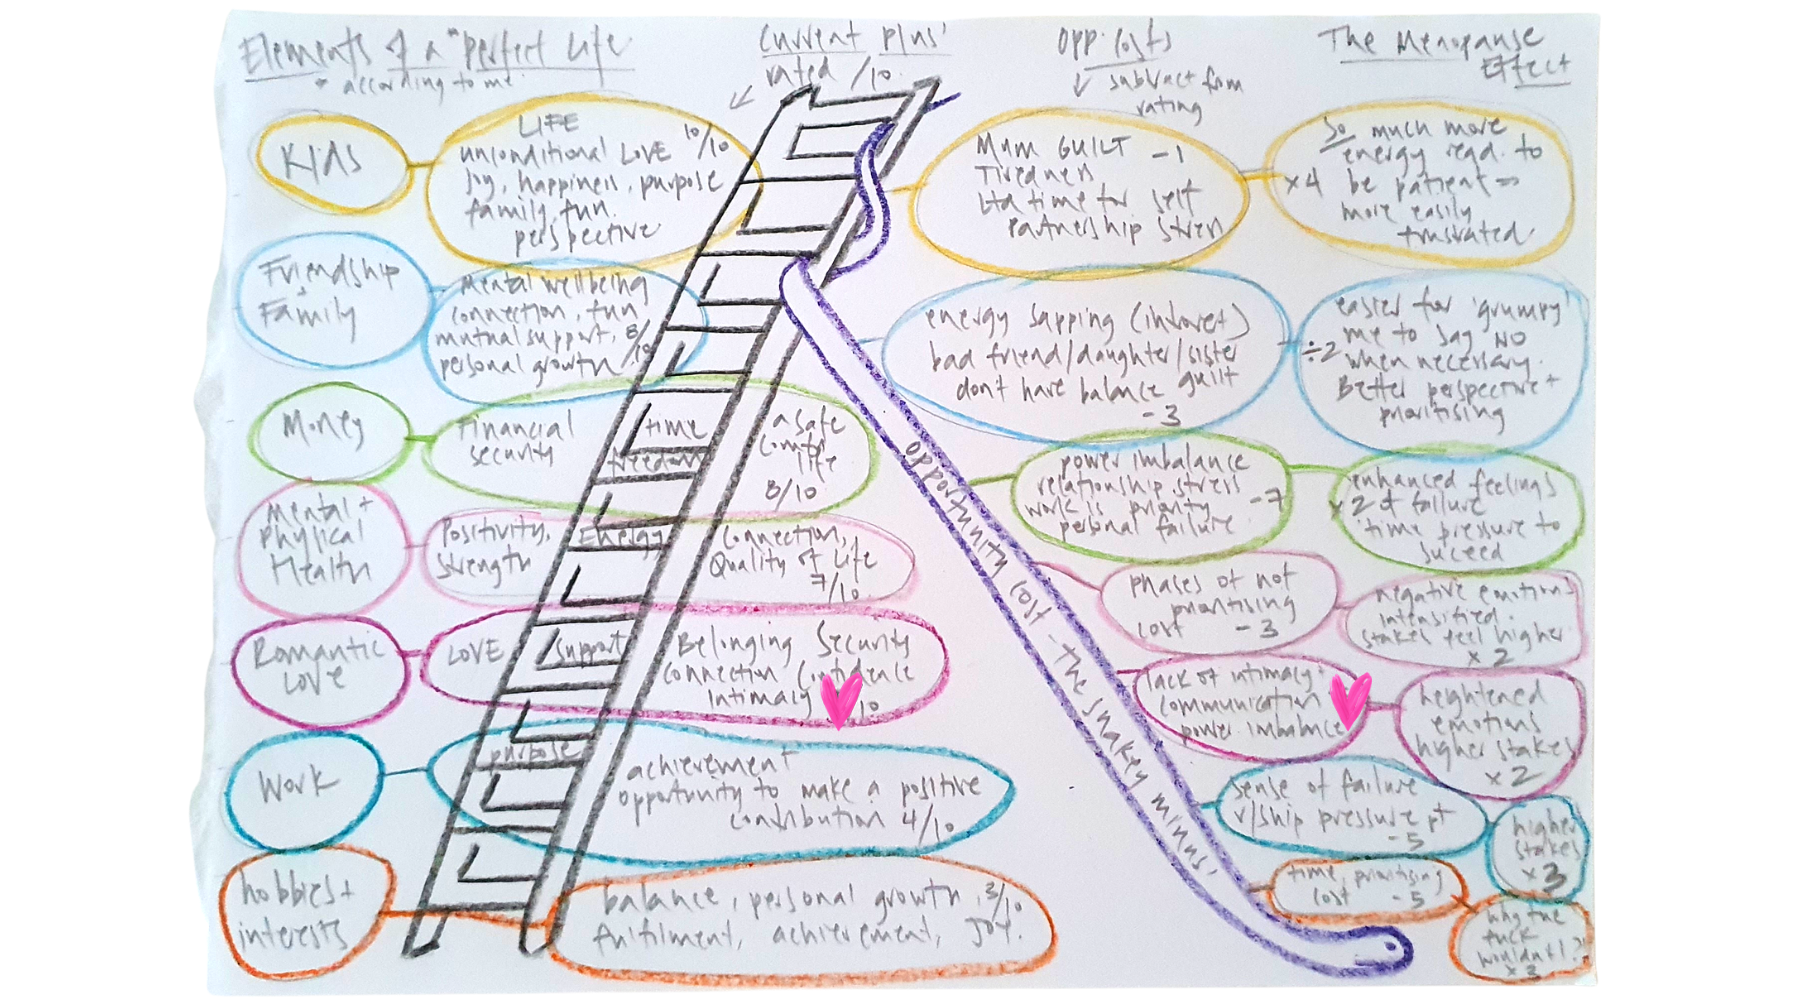 Elements of a "perfect life"
* according to me
Current 'plus'
rated /10
Opp. Costs
subtract from
rating
The Menopause
Effect
Kids
LIFE
unconditional LOVE 10/10
joy, happiness, purpose
family, fun.
perspective
Mum GUILT -1
Tiredness
Ltd time for self
Partnership stress
So much more
energy reqd. to
x4 be patient =>
more easily
frustrated
Friendship
+
Family
Mental wellbeing
connection, fun
mutual support, 8/10
personal growth
energy sapping (introvert)
bad friend/daughter/sister
don't have balance guilt
-3
easier for 'grumpy'
me to say NO
÷2 when necessary.
Better perspective +
prioritising
Money
Financial
security
time
freedom
a safe
comf
life
8/10
power imbalance
relationship stress
work is priority -7
personal failure
enhanced feelings
x2 of failure
'time pressure to
suceed
Mental +
Physical
Health
Positivity,
strength
Energy
Connection,
Quality of Life
7/10
phases of not
prioritising
cost -3
negative emotions
intensified.
stakes feel higher
x2
Romantic
Love
LOVE
support
Belonging Security
Connection Confidence
Intimacy
lack of intimacy +
communication
power imbalance
heightened
emotions
higher stakes
x2
Work
purpose
achievement
opportunity to make a positive
contribution 4/10
sense of failure
r/ship pressure pt
-5
higher
stakes
x3
hobbies +
interests
balance, personal growth, 3/10
fulfilment, achievement, JOY.
time, prioritising
cost -5
why the
fuck
wouldn't I?
x3
opportunity cost - the snakey 'minus'